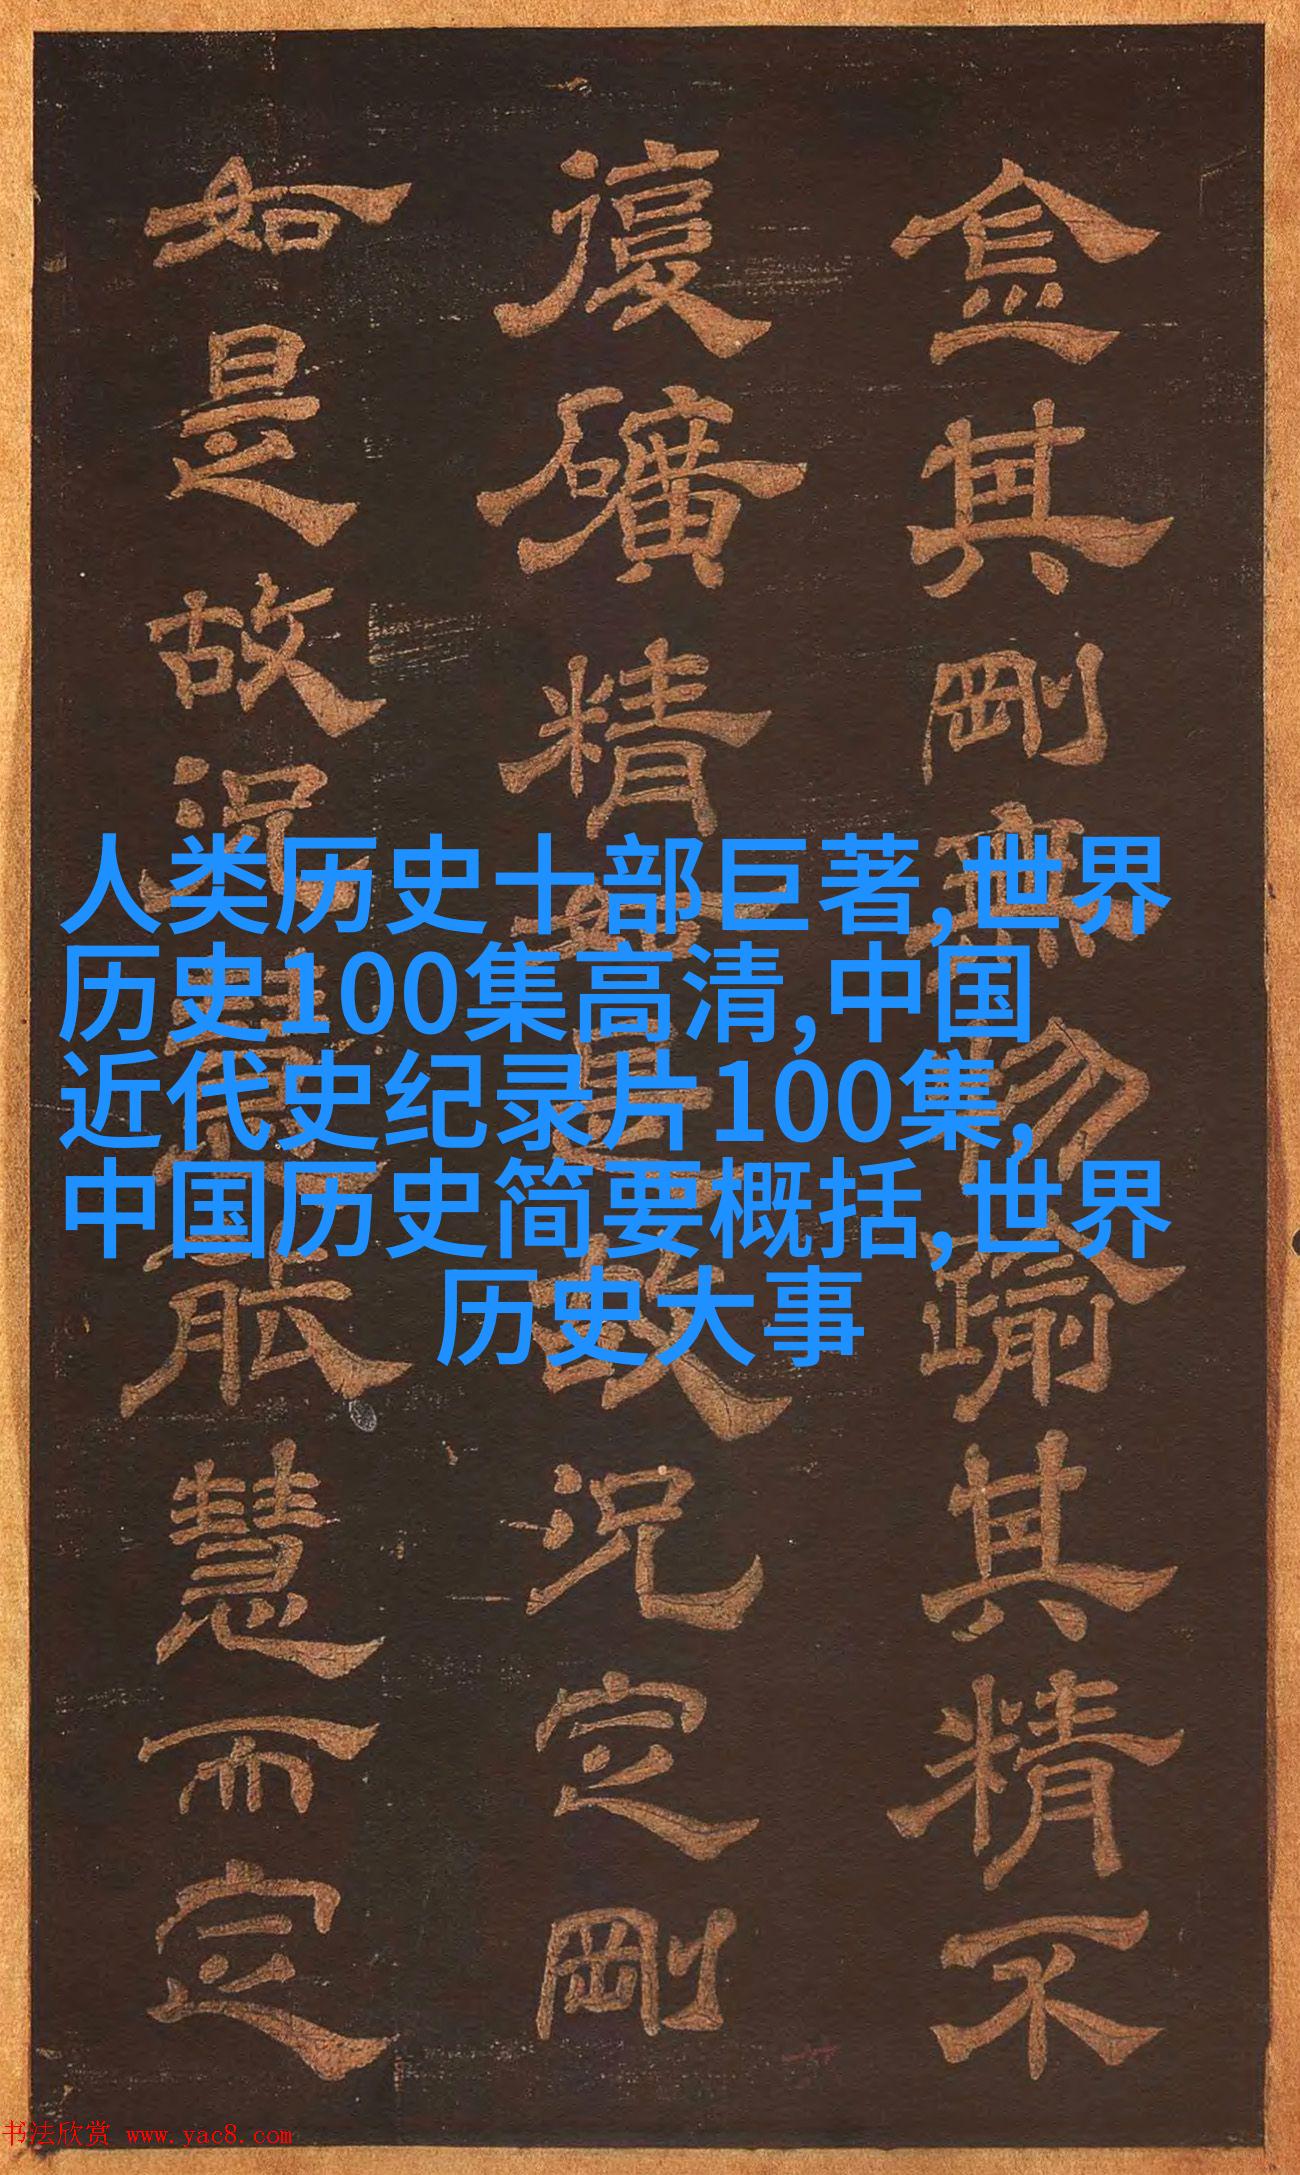 金其剛無物踰其精不
復礦精故況定剛
如是故況能慧而定
人类历史十部巨著,世界
历史100集高清,中国
近代史纪录片100集,
中国历史简要概括,世界
历史大事
书法欣赏 www.yac8.com